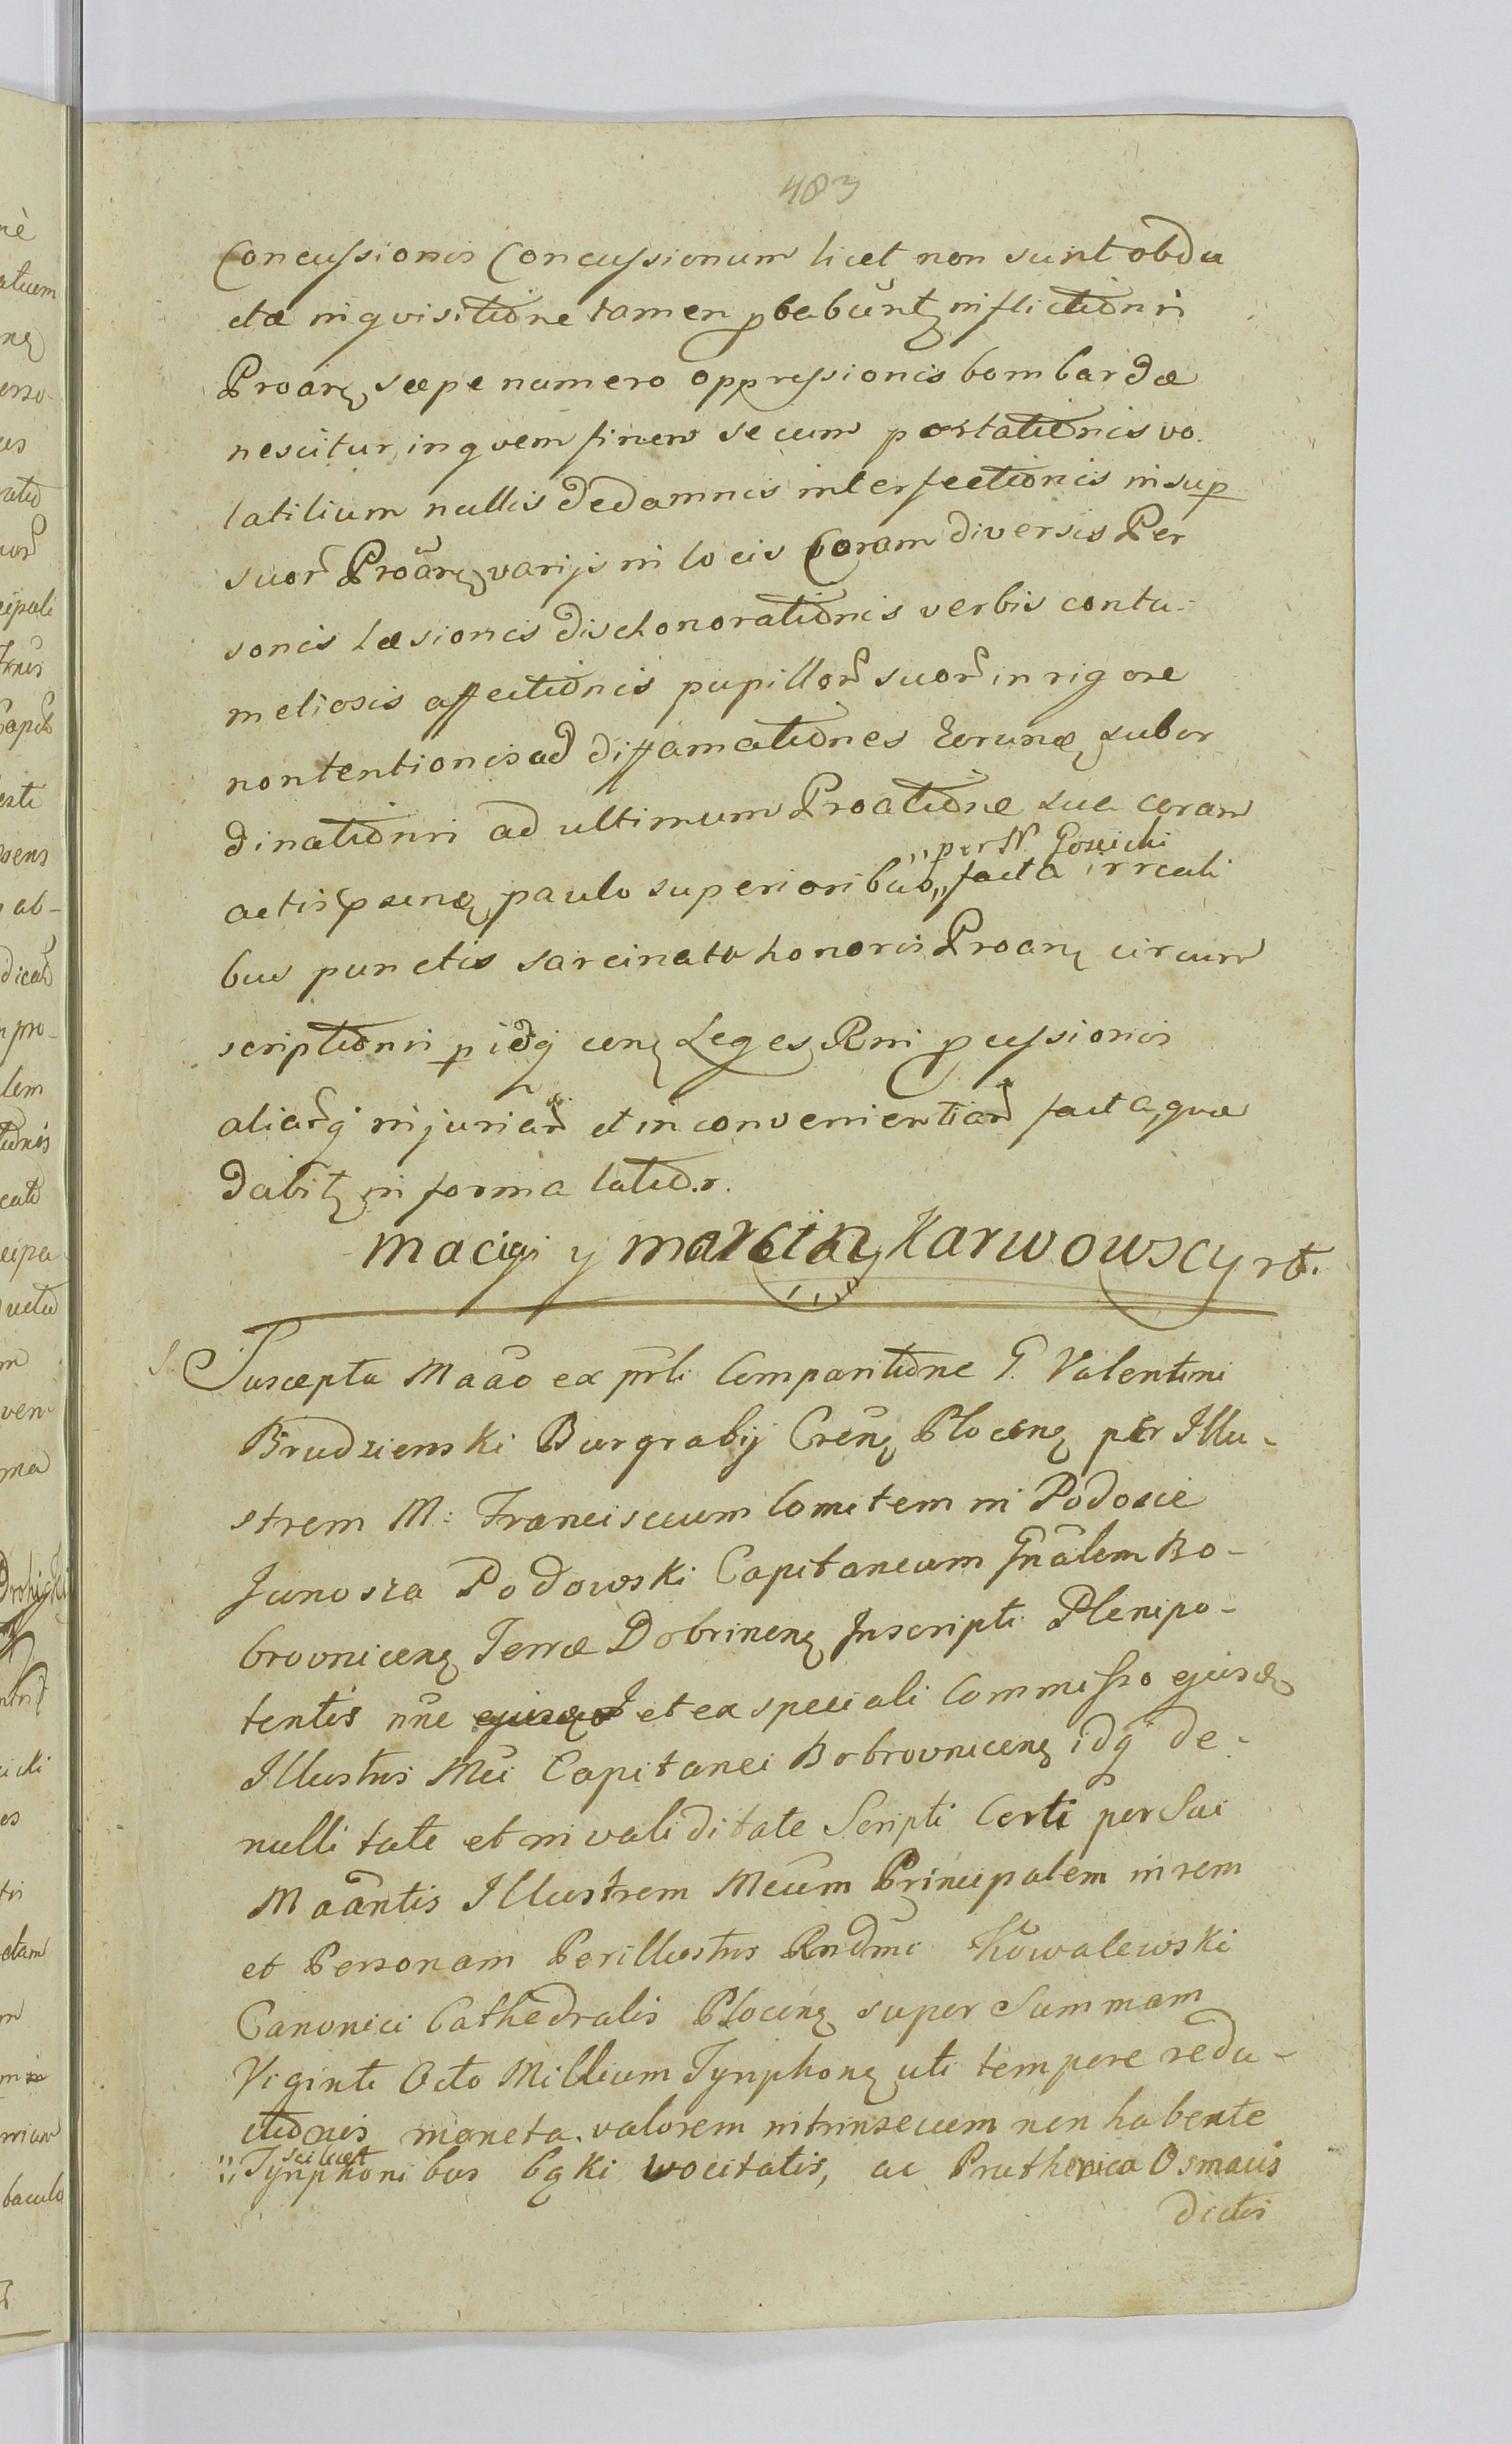 483
Concussionis Concussionum licet non sunt obdu
ctæ inqvisitiõne tamen pbabũntȝ inflictiõnis
Proarȝ sæpe numero oppressionis bombardæ
nescitur in qvem finem secum portatiõnis vo
latilium nullis de damnis interfectiõnis insup
suor Proãrȝ varijs in locis Coram diversis Per
sonis læsionis dischonoratiõnis verbis contu-
meliosis affectiõnis pupillor suor in rigore
nontentionis ad diffamatiõnes Eorundȝ subor
dinatiõnis ad ultimum Proatiõne sua coram
"per N. Gosicki
actis psendȝ paulo superioribus,, facta irreali
bus punctis sarcinata honoris Proarȝ circum
scriptiõnis p idqȝ cenȝ Leges Rni pcussionis
aliarqȝ injuriar et inconvenientiar facta, quæ
dabitȝ in forma latiõr.
Maciej y Marcin Karwowscy rt.
S. Suscepta Maão ex prli Comparitiõne G. Valentini
Brudzienski Burgrabij Crenȝ Plocenȝ per Illu-
strem M: Franciscum Comitem in Podosie
Junosza Podowski Capitaneum Gnãlem Bo-
brovnicenȝ Terræ Dobrinenȝ Inscripti Plenipo-
tentis nñe et ex speciali Commisso ejusdȝ
Illustris Mei Capitanei Bobrovnicenȝ idqȝ de
nullitate et invaliditate Scripti Certi per Sui
Maãntis Illustrem Meum Principalem in rem
et Personam Perillustris Rndmi Kowalewski
Canonici Cathedralis Plocenȝ super Summam
Viginti Octo Millium Tynphonȝ uti tempore redu-
ctiõnis moneta valorem intrinsecum non habente
scilicet
"Tynphonibus bąki wocitatis, ac Pruthenica Osmacis
dictis